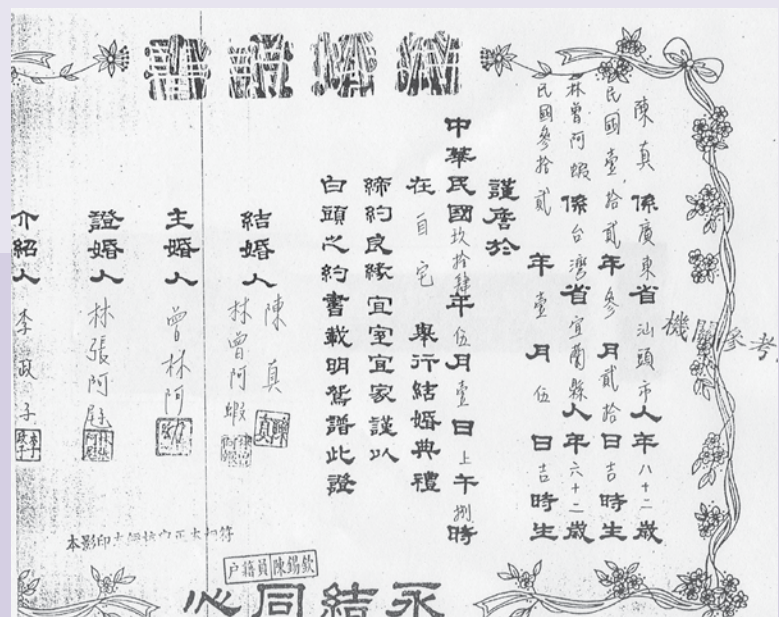 陳真係廣東省汕頭市人年八十二歲
民國壹拾貳年參月貳拾日吉時生
林曾阿蝦係台灣省宜蘭縣人年六十二歲
民國參拾貳年壹月伍日吉時生
謹詹於
中華民國玖拾肆年伍月壹日上午捌時
在自宅舉行結婚典禮
締約良緣宜室宜家謹以
白頭之約書載明鴛譜此證
結婚人
陳真
林曾阿蝦
主婚人
曾林阿
證婚人
林張阿
介紹人
李政子
機關參考
本影印本
符
戶籍員陳錫欽
永結同心